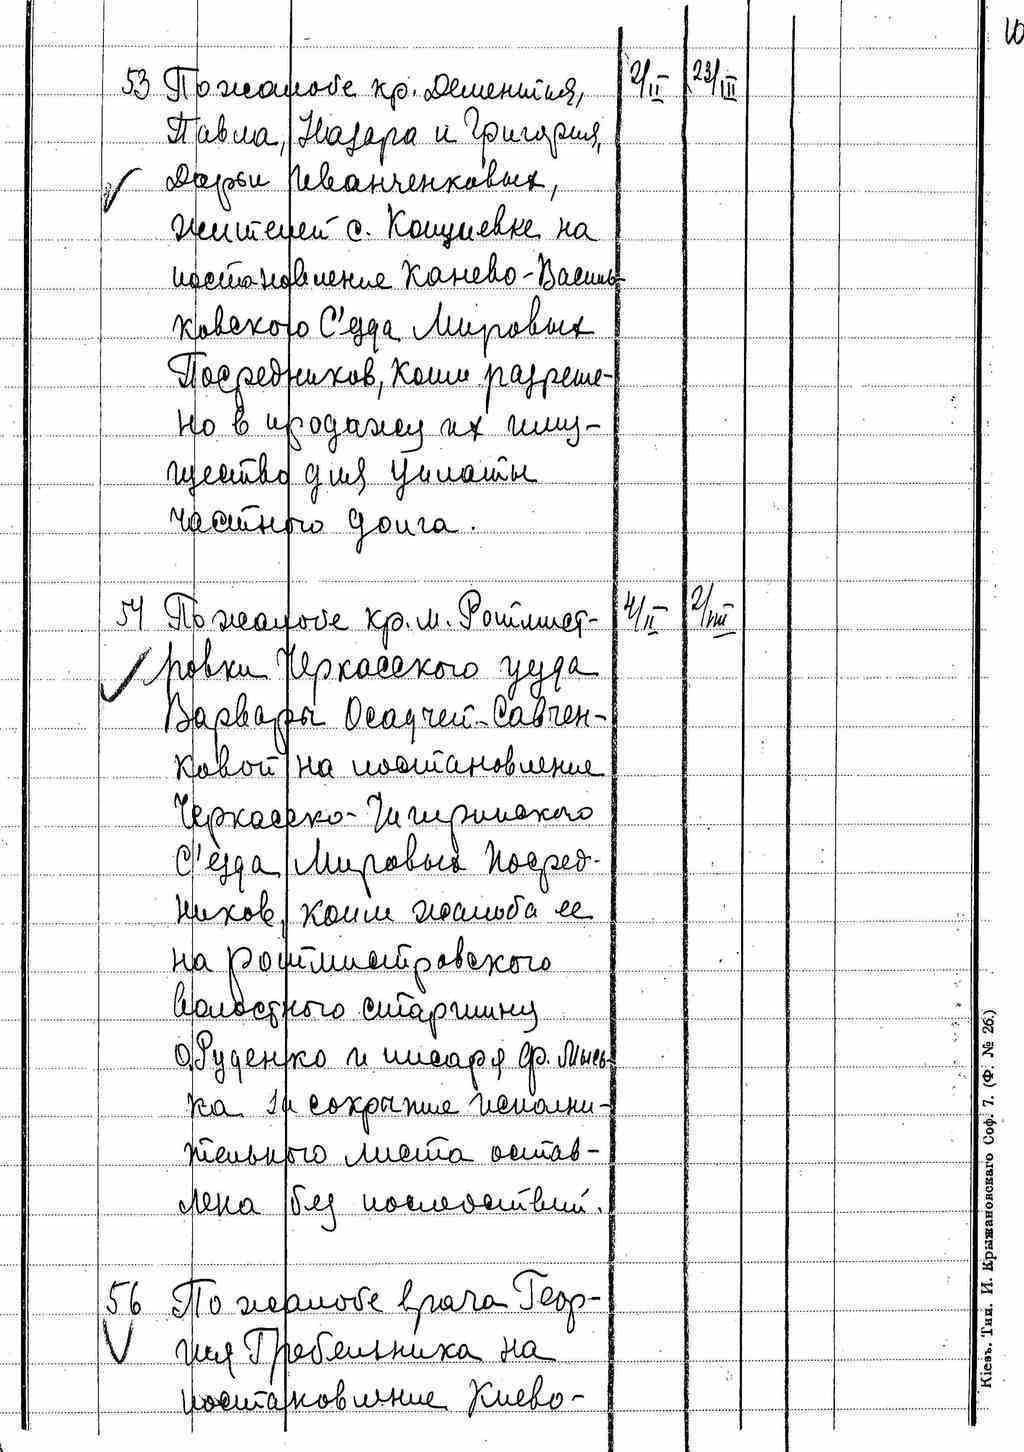 10
53 По жалобе кр. Дементия, 2/II 23/III
Павла, Назара и Григория,
Дарьи Иванченковых,
жителей с. Кощиевке на
постановление Канево-Василь-
ковского С'езда Мировых
Посредников, коим разреше-
но в продажу их иму-
щество для уплаты
частного долга.
54 По жалобе кр. м. Ротмист- 4/II 2/VIII
ровки Черкасского уезда
Варвары Осадчей-Савчен-
ковой на постановление
Черкасско-Чигиринского
С'езда Мировых Посред-
ников, коим жалоба ее
на Ротмистровского
волостного старшину
О.Руденко и писаря Ф. Мысь-
ка за сокрытие исполни-
тельного листа остав-
лена без последствий.
56 По жалобе врача Геор-
гия Гребельника на
постановление Киево-
Кіевъ. Тип. И. Крыжановскаго Соф. 7. (Ф. № 26.)